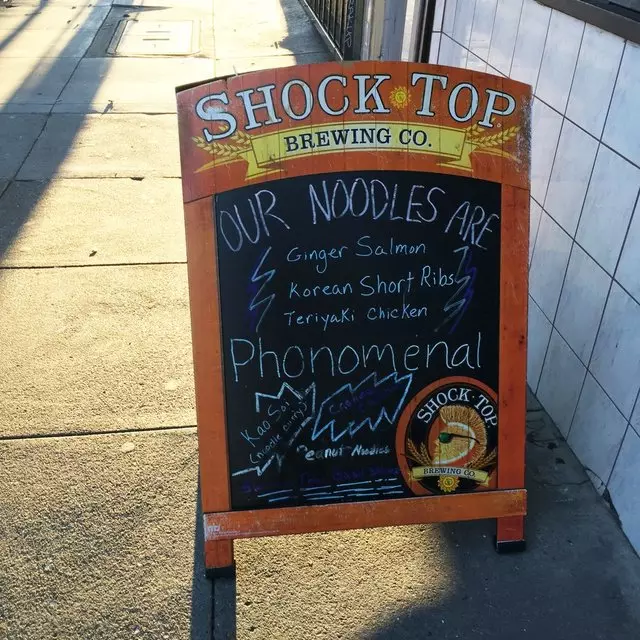 SHOCK TOP
BREWING CO.
OUR NOODLES ARE
Ginger Salmon
Korean Short Ribs
Teriyaki Chicken
Phonomenal
Kao Soi
(noodle curry)
Peanut Noodles
SHOCK TOP
BREWING CO.